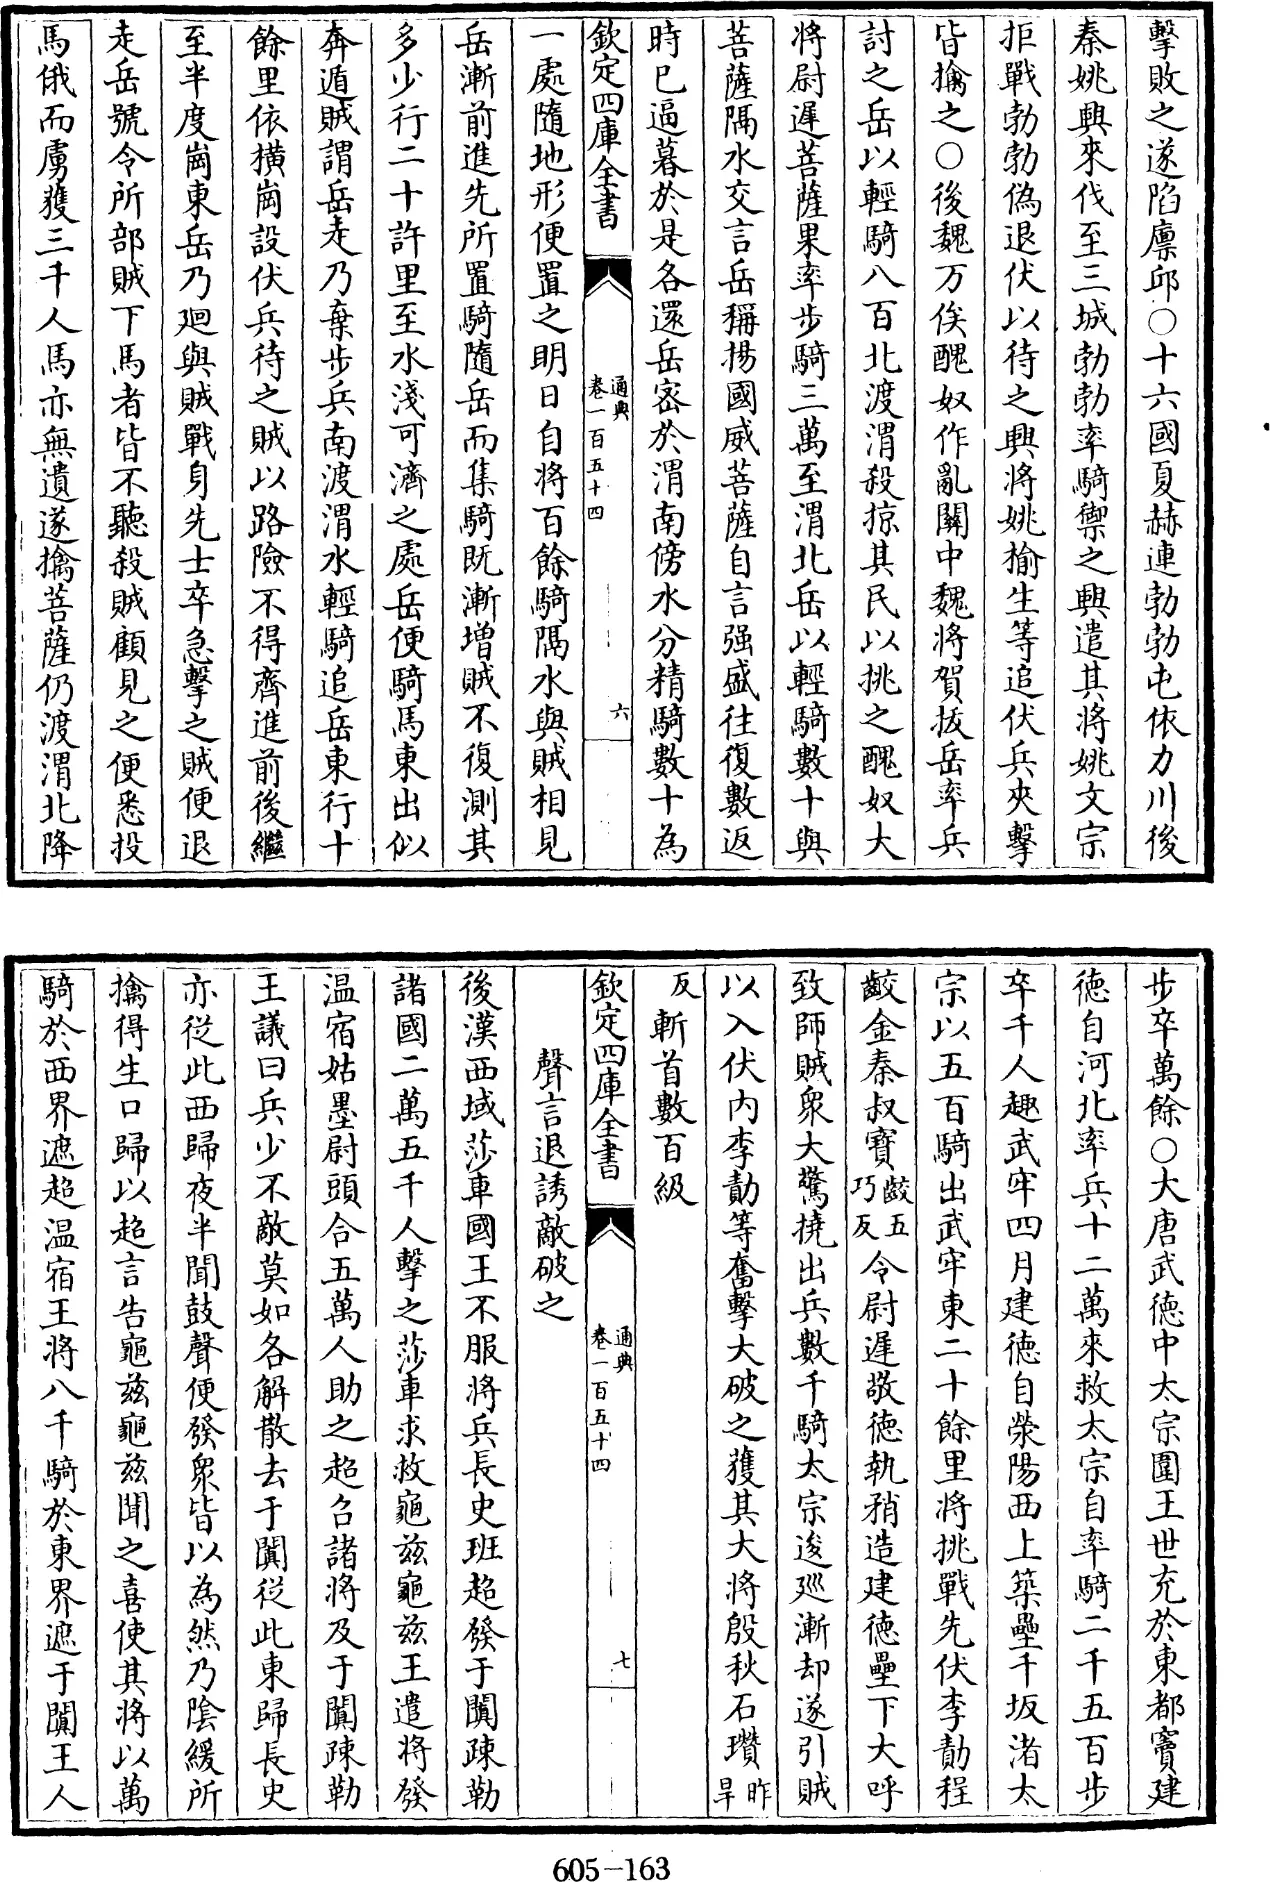 擊敗之遂陷廪邱○十六國夏赫連勃勃屯依力川後
秦姚興來伐至三城勃勃率騎禦之興遣其將姚文宗
拒戰勃勃偽退伏以待之興將姚榆生等追伏兵夾擊
皆擒之○後魏万俟醜奴作亂關中魏將賀拔岳率兵
討之岳以輕騎八百北渡渭殺掠其民以挑之醜奴大
將尉遲菩薩果率步騎三萬至渭北岳以輕騎數十與
菩薩隔水交言岳稱揚國威菩薩自言强盛往復數返
時已逼暮於是各還岳密於渭南傍水分精騎數十為
欽定四庫全書
通典
卷一百五十四
六
一處隨地形便置之明日自將百餘騎隔水與賊相見
岳漸前進先所置騎隨岳而集騎既漸增賊不復測其
多少行二十許里至水淺可濟之處岳便騎馬東出似
奔遁賊謂岳走乃棄步兵南渡渭水輕騎追岳東行十
餘里依横崗設伏兵待之賊以路險不得齊進前後繼
至半度崗東岳乃廻與賊戰身先士卒急擊之賊便退
走岳號令所部賊下馬者皆不聽殺賊顧見之便悉投
馬俄而虜獲三千人馬亦無遺遂擒菩薩仍渡渭北降
步卒萬餘○大唐武徳中太宗圍王世充於東都竇建
徳自河北率兵十二萬來救太宗自率騎二千五百步
卒千人趣武牢四月建徳自滎陽西上築壘于坂渚太
宗以五百騎出武牢東二十餘里將挑戰先伏李勣程
齩金秦叔寶齩五巧反令尉遲敬徳執矟造建徳壘下大呼
致師賊衆大驚撓出兵數千騎太宗逡廵漸却遂引賊
以入伏内李勣等奮擊大破之獲其大將殷秋石瓚昨旱
反斬首數百級
欽定四庫全書
通典
卷一百五十四
七
聲言退誘敵破之
後漢西域莎車國王不服將兵長史班超發于闐疎勒
諸國二萬五千人擊之莎車求救龜兹龜兹王遣將發
温宿姑墨尉頭合五萬人助之超召諸將及于闐疎勒
王議曰兵少不敵莫如各解散去于闐從此東歸長史
亦從此西歸夜半聞鼓聲便發衆皆以為然乃陰緩所
擒得生口歸以超言告龜兹龜兹聞之喜使其將以萬
騎於西界遮超温宿王將八千騎於東界遮于闐王人
605-163